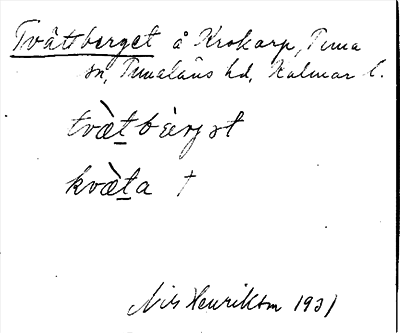 Tvättberget å Krokarp, Tuna
sn, Tunaläns hd, Kalmar l.
tvæ̀t bærjət
kvæ̀ta †
Nils Henrikson 1931